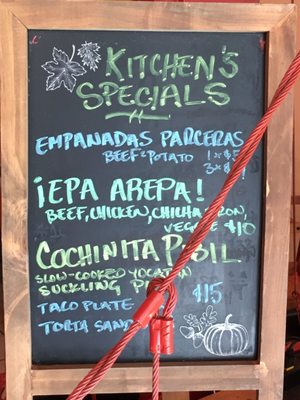 KITCHEN'S
SPECIALS
EMPANADAS PARCERAS
BEEF & POTATO 1 x $
3 x $
¡EPA AREPA!
BEEF, CHICKEN, CHICHARRON,
VEGGIE $10
COCHINITA PIBIL
SLOW-COOKED YOCATAN
SUCKLING
TACO PLATE $15
TORTA SAND